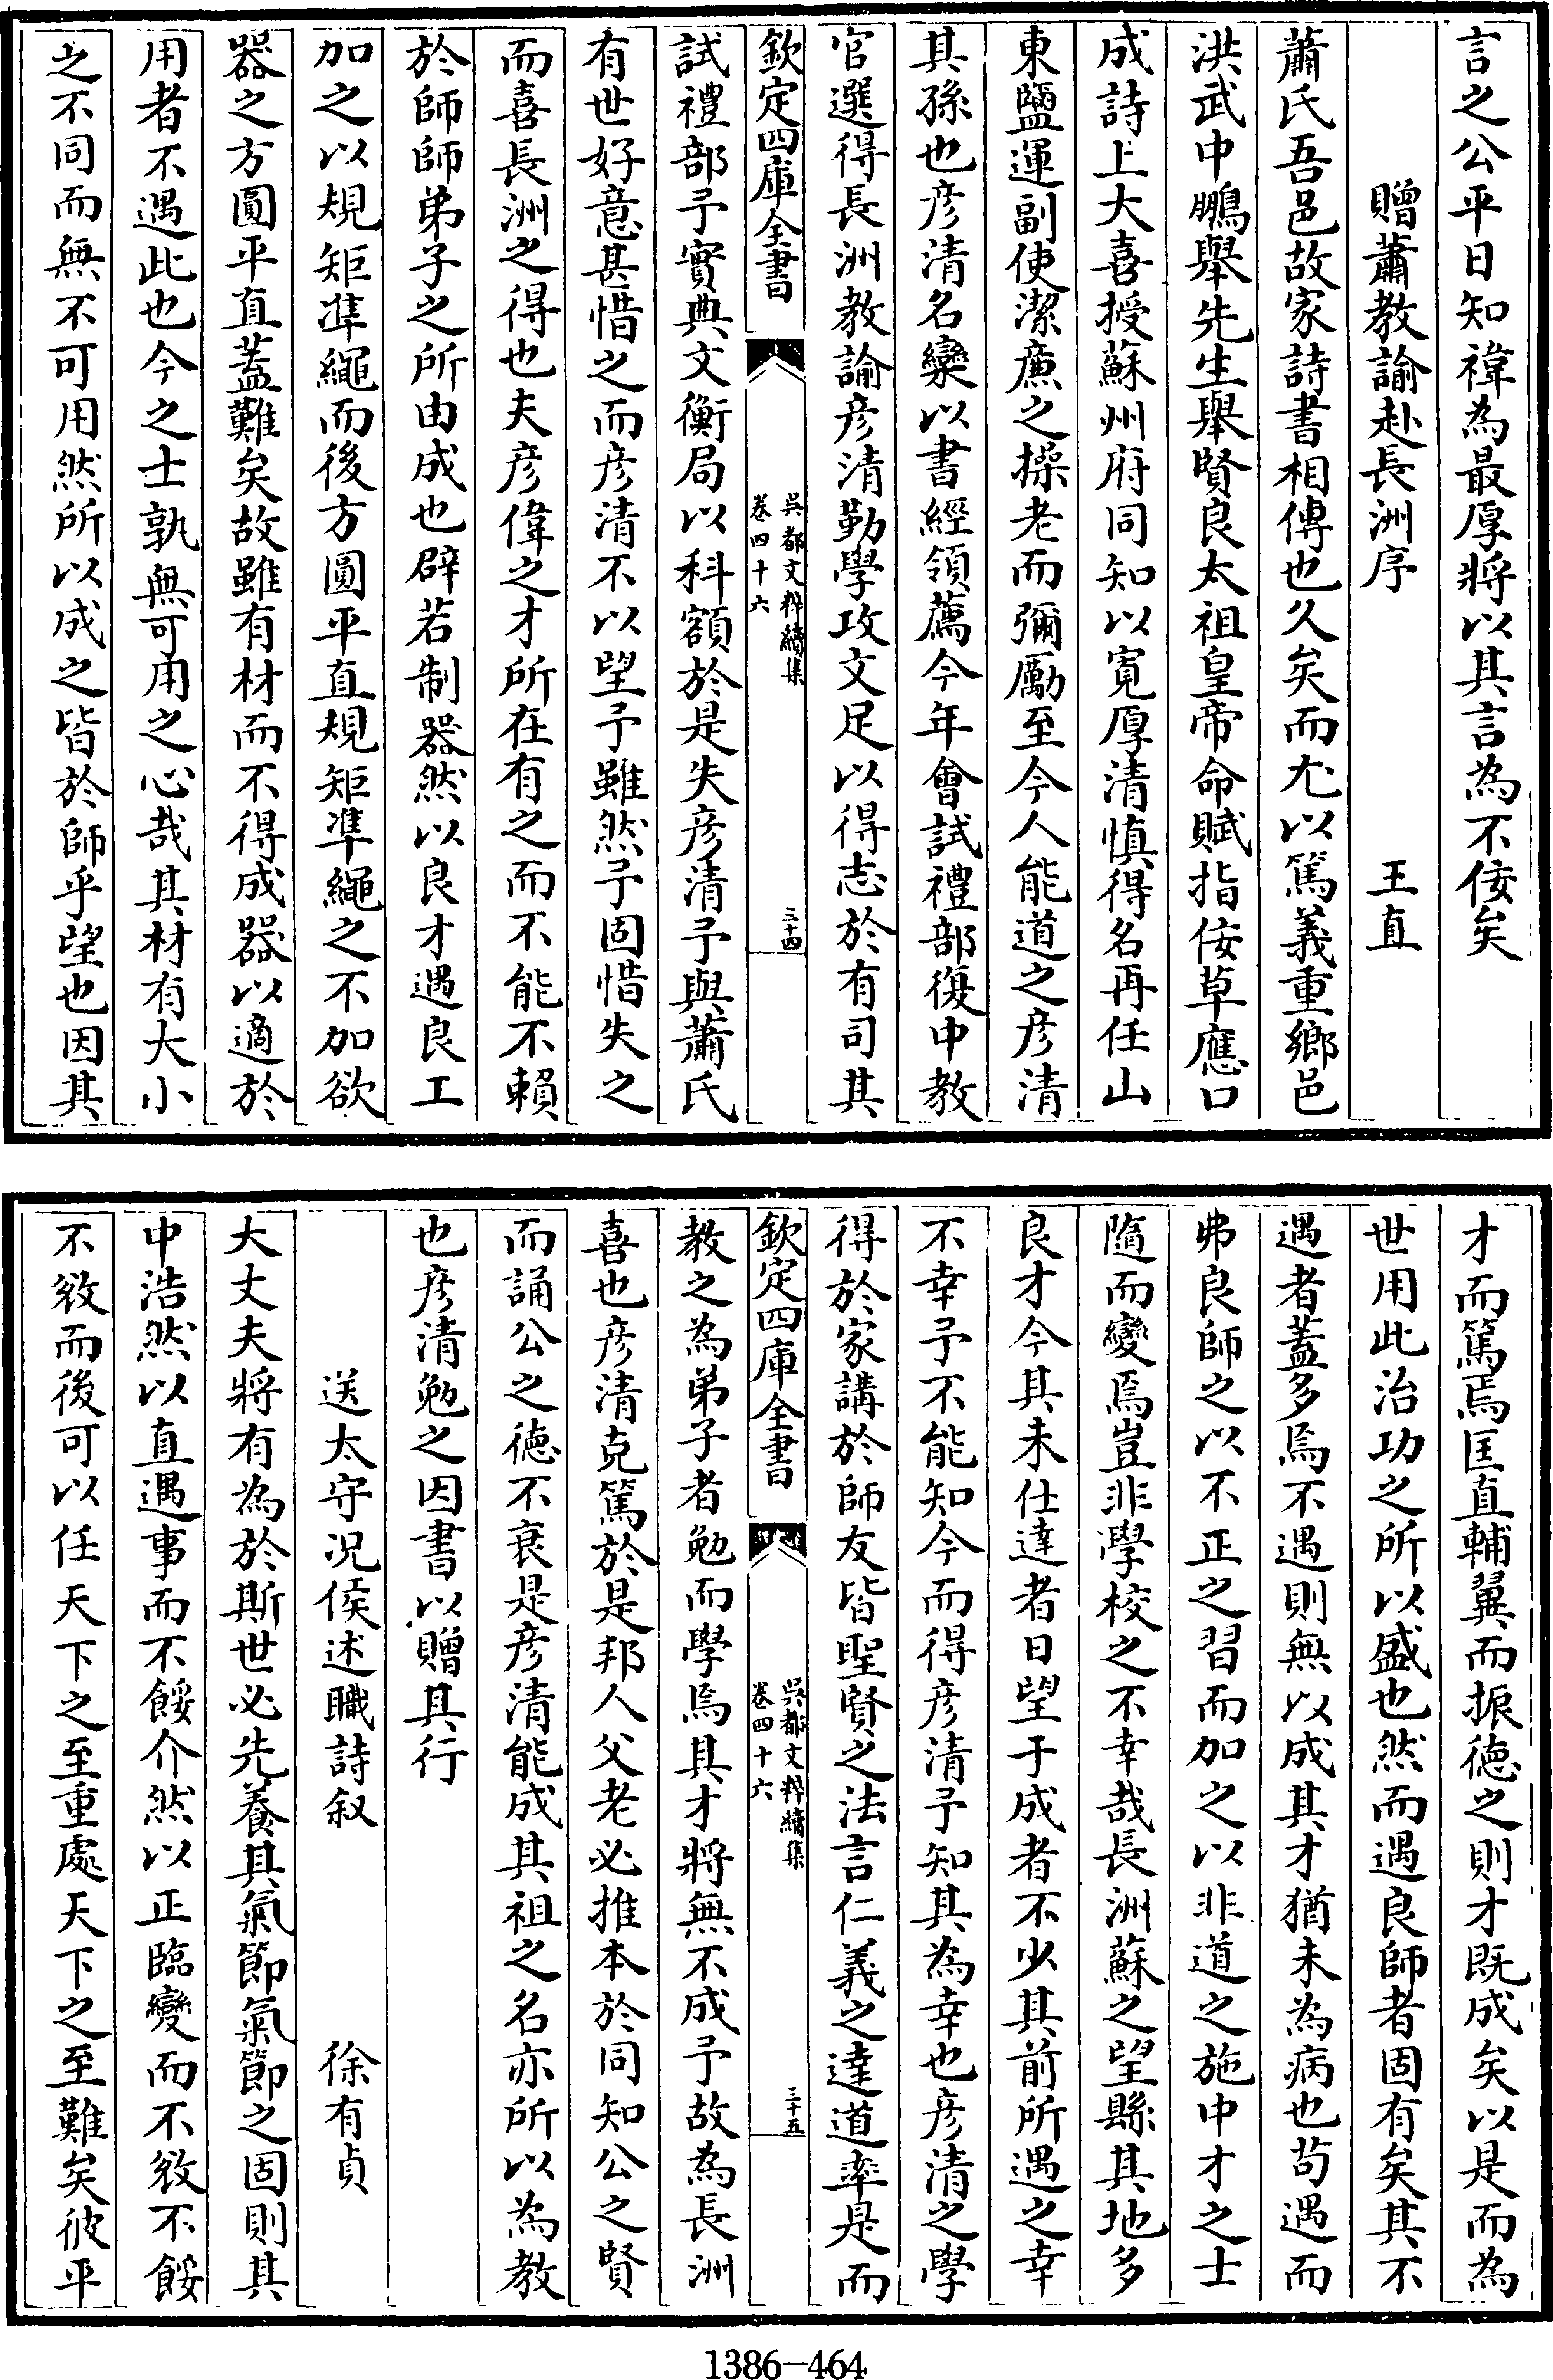 言之公平日知禕為最厚將以其言為不佞矣
贈蕭教諭赴長洲序 王直
蕭氏吾邑故家詩書相傳也久矣而尤以篤義重鄉邑
洪武中鵬舉先生舉賢良太祖皇帝命賦指佞草應口
成詩上大喜授蘇州府同知以寛厚清慎得名再任山
東鹽運副使潔亷之操老而彌勵至今人能道之彦清
其孫也彦清名欒以書經領薦今年會試禮部復中教
官選得長洲教諭彦清勤學攻文足以得志於有司其
欽定四庫全書
吳都文粹續集
卷四十六
三十四
試禮部予實典文衡局以科額於是失彦清予與蕭氏
有世好意甚惜之而彦清不以望予雖然予固惜失之
而喜長洲之得也夫彦偉之才所在有之而不能不賴
於師師弟子之所由成也辟若制器然以良才遇良工
加之以規矩準繩而後方圓平直規矩準繩之不加欲
器之方圓平直蓋難矣故雖有材而不得成器以適於
用者不遇此也今之士孰無可用之心哉其材有大小
之不同而無不可用然所以成之皆於師乎望也因其
才而篤焉匡直輔翼而振德之則才既成矣以是而為
世用此治功之所以盛也然而遇良師者固有矣其不
遇者蓋多焉不遇則無以成其才猶未為病也苟遇而
弗良師之以不正之習而加之以非道之施中才之士
隨而變焉豈非學校之不幸哉長洲蘇之望縣其地多
良才今其未仕達者日望于成者不少其前所遇之幸
不幸予不能知今而得彦清予知其為幸也彦清之學
得於家講於師友皆聖賢之法言仁義之達道率是而
欽定四庫全書
吳都文粹續集
卷四十六
三十五
教之為弟子者勉而學焉其才將無不成予故為長洲
喜也彦清克篤於是邦人父老必推本於同知公之賢
而誦公之德不衰是彦清能成其祖之名亦所以為教
也彦清勉之因書以贈其行
送太守況侯述職詩叙 徐有貞
大丈夫將有為於斯世必先養其氣節氣節之固則其
中浩然以直遇事而不餒介然以正臨變而不敚不餒
不敚而後可以任天下之至重處天下之至難矣彼平
1386-464